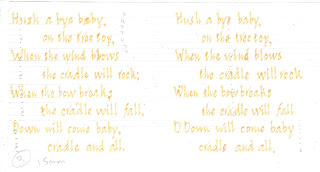 Hush a bye baby,
on the tree top,
When the wind blows
the cradle will rock;
When the bow breaks
the cradle will fall,
Down will come baby,
cradle and all.
15mm
Hush a bye baby,
on the tree top,
When the wind blows
the cradle will rock
When the bow breaks
the cradle will fall
D Down will come baby
cradle and all,